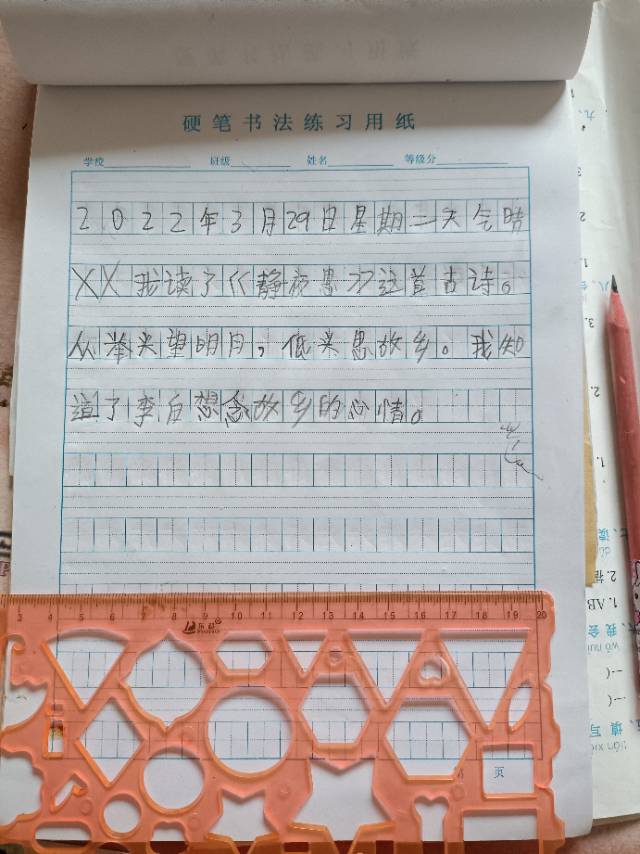 硬笔书法练习用纸
学校 班级 姓名 等级分
2022年3月29日星期二天气晴
XX我读了《静夜思》这首古诗。
从举头望明月，低头思故乡。我知
道了李白想念故乡的心情。
3 4 5 6 7 8 9 10 11 12 13 14 15 16 17 18 19 20
页